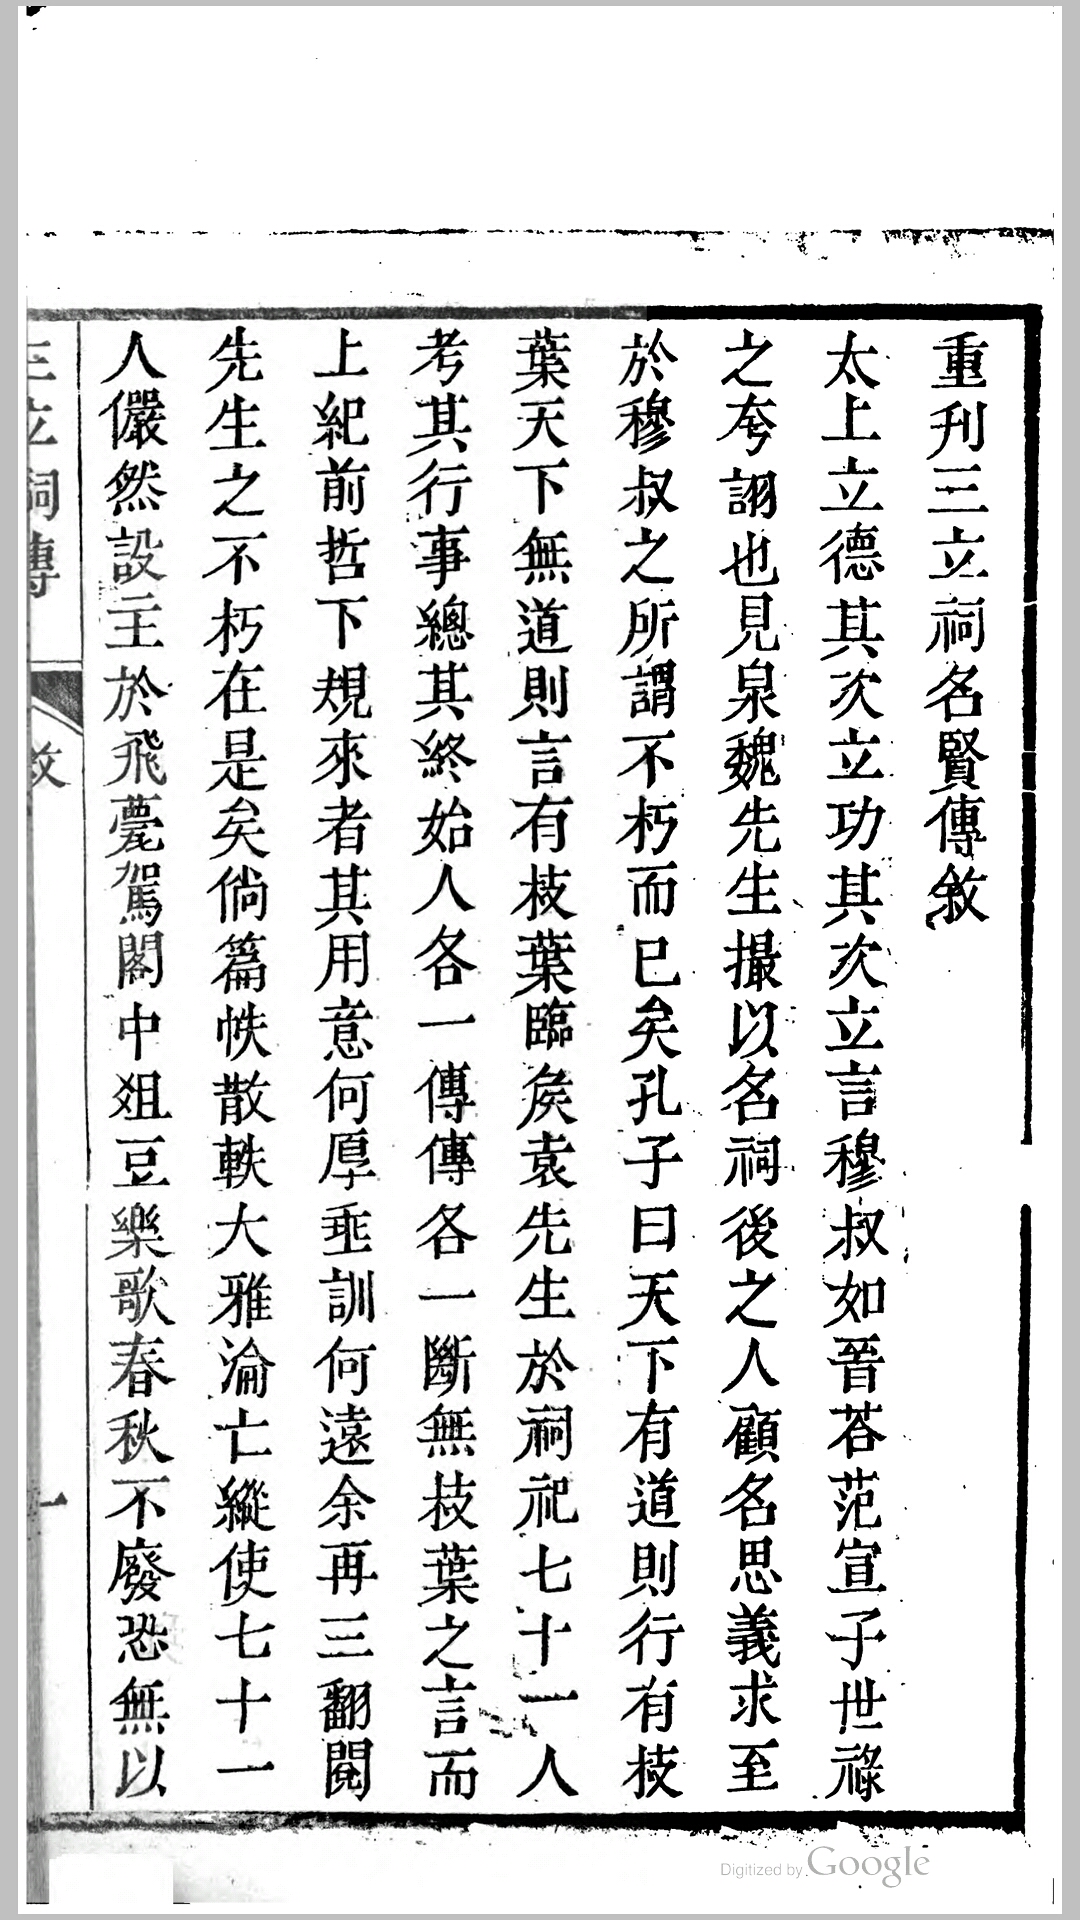 重刋三立祠名賢傳敘
太上立德其次立功其次立言穆叔如晉荅范宣子世祿
之夸詡也見泉魏先生撮以名祠後之人顧名思義求至
於穆叔之所謂不朽而已矣孔子曰天下有道則行有枝
葉天下無道則言有枝葉臨矦袁先生於祠祀七十一人
考其行事總其終始人各一傳傳各一斷無枝葉之言而
上紀前哲下規來者其用意何厚垂訓何遠余再三翻閱
先生之不朽在是矣倘篇帙散軼大雅淪亡縱使七十一
人儼然設主於飛甍駕閣中俎豆樂歌春秋不廢恐無以
三立祠傳
敘
一
Digitized by Google